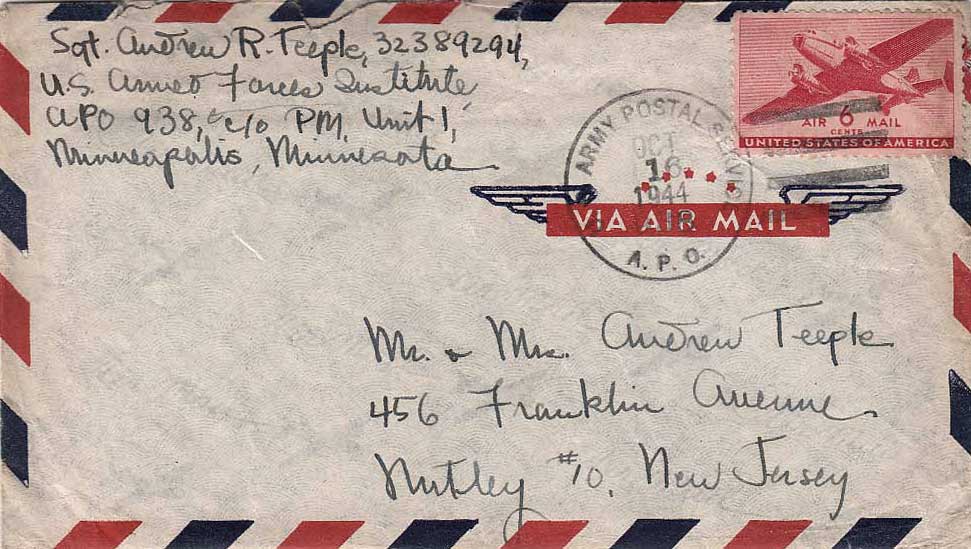 Sgt. Andrew R. Teeple, 32389294,
U.S. Armed Forces Institute,
APO 938, c/o PM, Unit 1,
Minneapolis, Minnesota
AIR 6 MAIL
CENTS
UNITED STATES OF AMERICA
ARMY POSTAL SERVICE
OCT
16
1944
A. P. O.
VIA AIR MAIL
Mr. & Mrs. Andrew Teeple
456 Franklin Avenue
Nutley #10, New Jersey